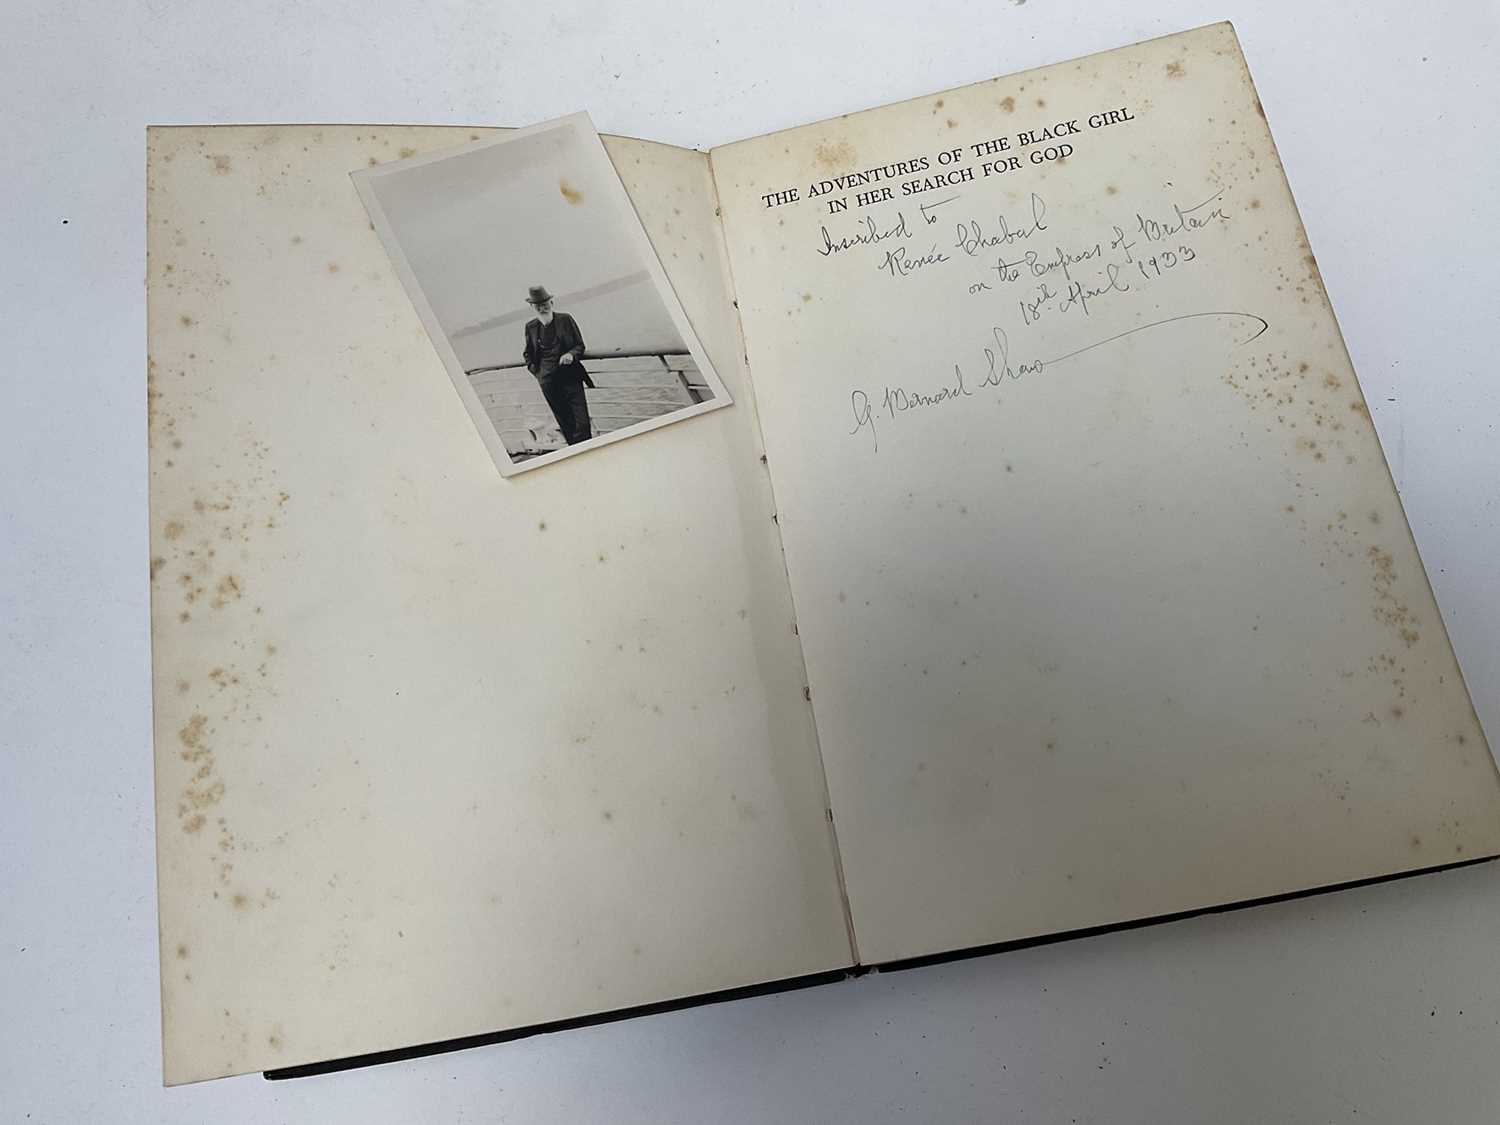 THE ADVENTURES OF THE BLACK GIRL
IN HER SEARCH FOR GOD
Inscribed to
Renée Chabal
on the Empress of Britain
18th April 1933
G. Bernard Shaw